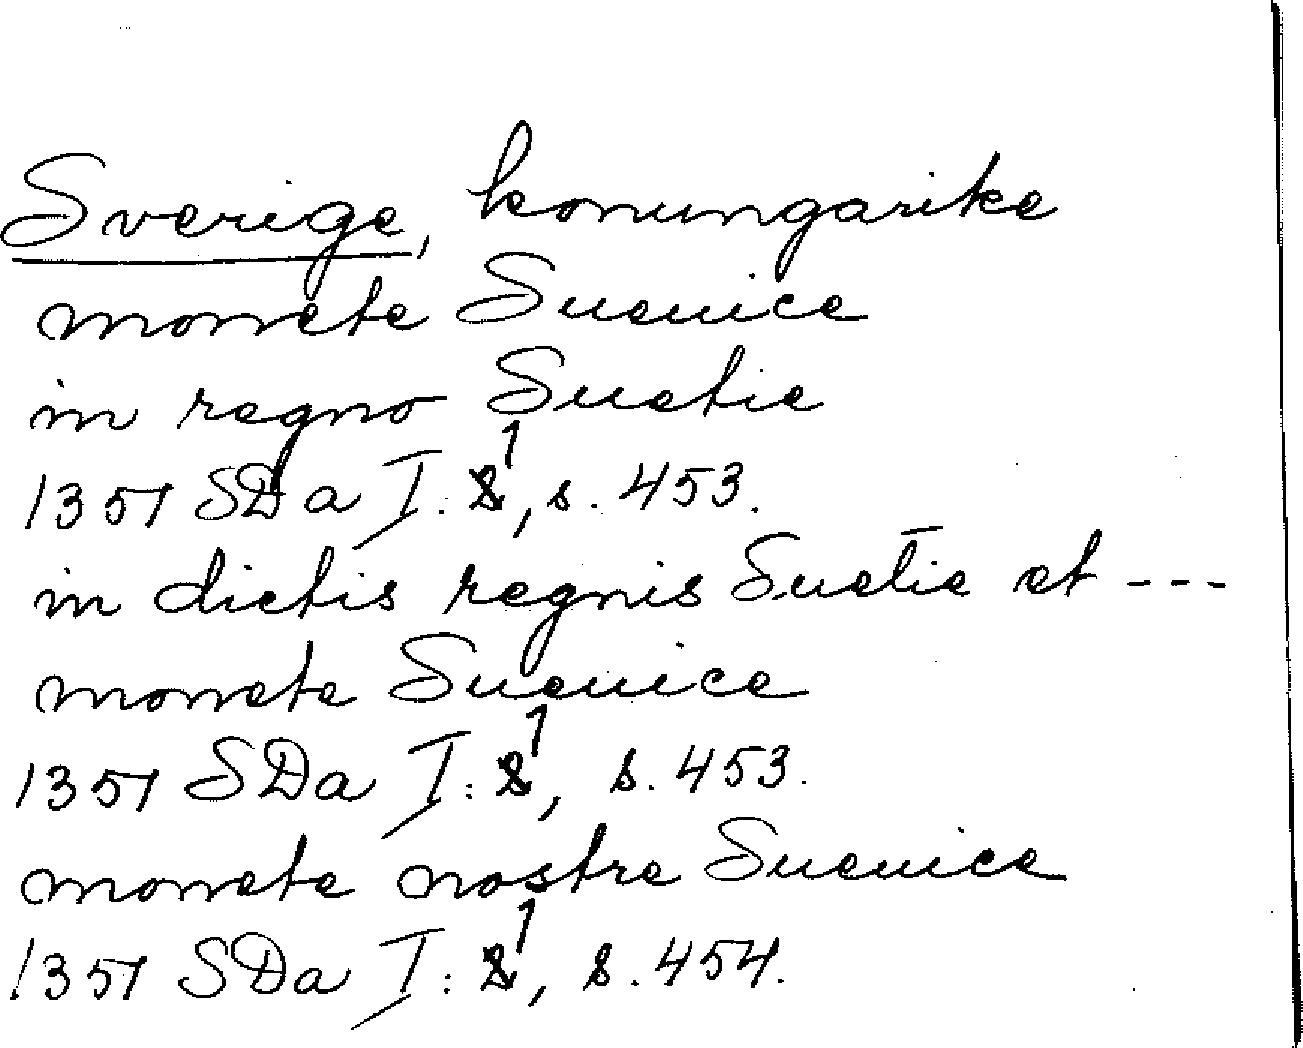 Sverige, konungarike
monete Sueuice
in regno Suetie
1351 SDa I:1, s. 453.
in dictis regnis Suetie et ---
monete Sueuice
1351 SDa I:1, s. 453.
monete nostre Sueuice
1351 SDa I:1, s. 454.